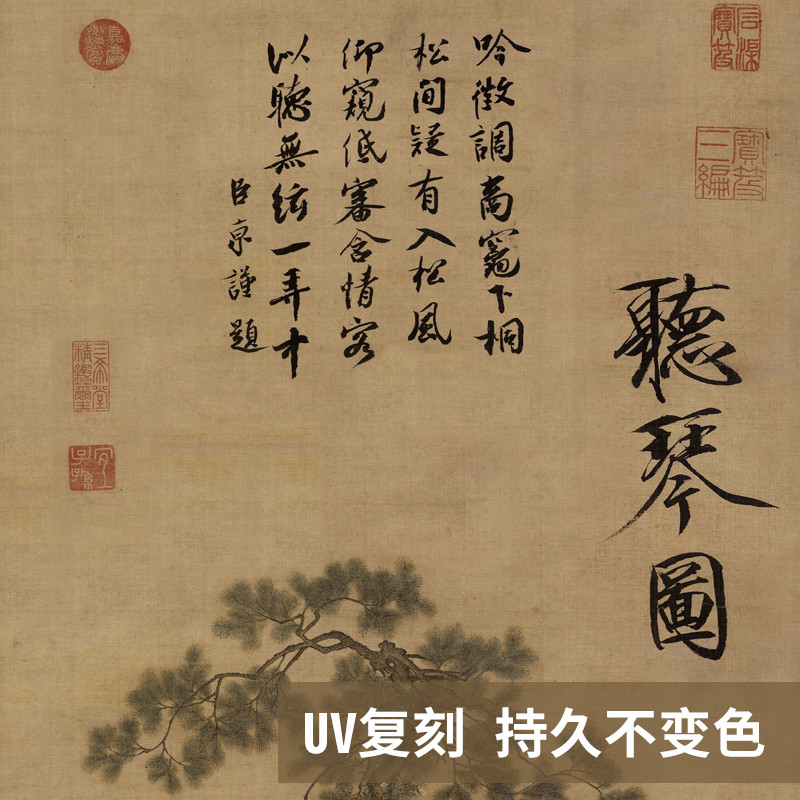 石渠寶笈
寶笈三編
聽琴圖
吟徵調商竈下桐
松間疑有入松風
仰窺低審含情客
以聽無絃一弄中
臣京謹題
嘉慶鑑賞
三希堂精鑑璽
宜子孫
UV复刻 持久不变色